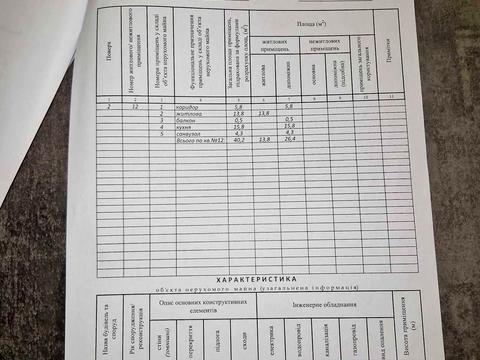 Поверх
Номер житлового/ нежитлового приміщення
Номери приміщень у складі об'єкта нерухомого майна
Функціональне призначення приміщень у складі об'єкта нерухомого майна
Загальна площа приміщень, підрахована за формулами розрахунку площ, (м²)
Площа (м²)
житлових приміщень
нежитлових приміщень
житлова
допоміжна
основна
допоміжна (підсобна)
приміщень загального користування
Примітки
1 2 3 4 5 6 7 8 9 10 11
2 12 1 коридор 5,8 5,8
2 житлова 13,8 13,8
3 балкон 0,5 0,5
4 кухня 15,8 15,8
5 санвузол 4,3 4,3
Всього по кв.№12: 40,2 13,8 26,4
ХАРАКТЕРИСТИКА
об'єкта нерухомого майна (узагальнена інформація)
Назва будівель та споруд
Рік спорудження/ реконструкція
Опис основних конструктивних елементів
Інженерне обладнання
стіни (зовнішні)
перекриття
підлога
сходи
електрика
водопровід
каналізація
газопровід
вид опалення
Висота приміщення (м)